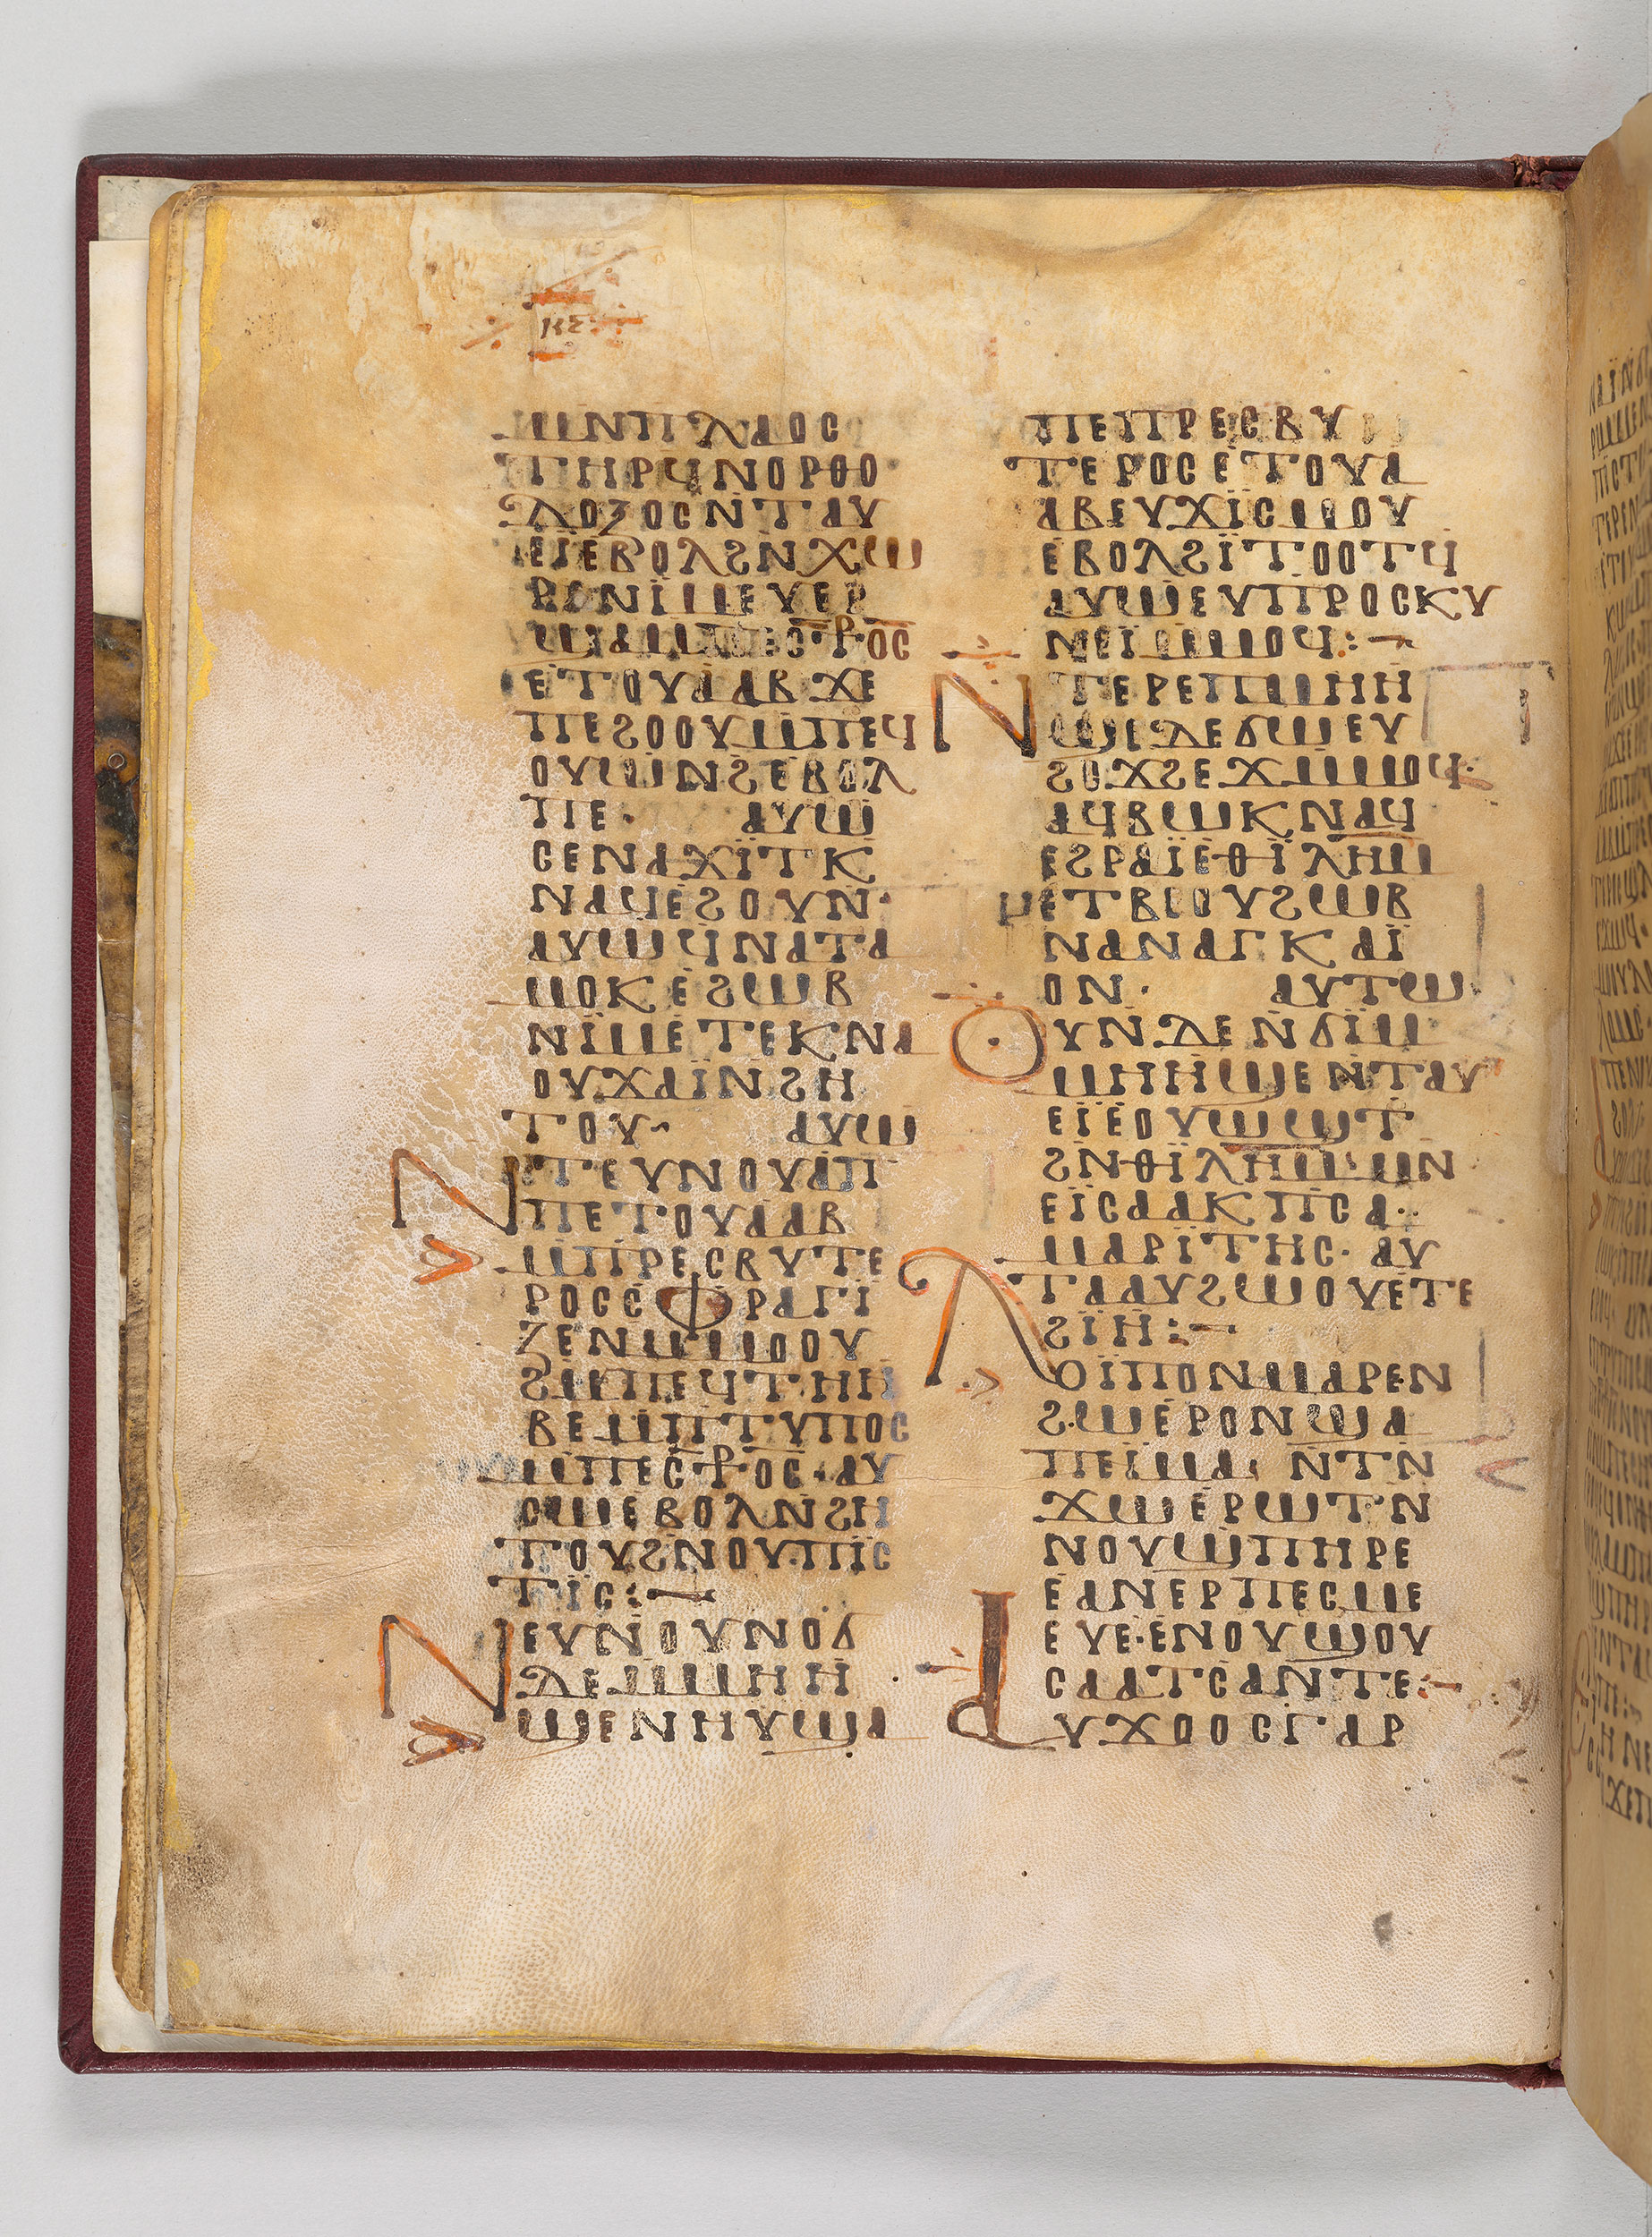 ⲕⲋ
ⲙⲛⲡⲗⲁⲟⲥ
ⲧⲏⲣϥⲛⲟⲣⲑⲟ
ⲇⲟⲝⲟⲥⲛⲧⲁⲩ
ⲉⲓⲉⲃⲟⲗϩⲛⲭⲱ
ⲣⲁⲛⲓⲙⲉⲩⲉⲣ
ϣⲁⲙⲡⲉⲥⳁⲟⲥ
ⲉⲧⲟⲩⲁⲁⲃϫⲉ
ⲡⲉϩⲟⲟⲩⲙⲡⲉϥ
ⲟⲩⲱⲛϩⲉⲃⲟⲗ
ⲡⲉ· ⲁⲩⲱ
ⲥⲉⲛⲁϫⲓⲧⲕ
ⲛⲁϥⲉϩⲟⲩⲛ·
ⲁⲩⲱϥⲛⲁⲧⲁ
ⲙⲟⲕⲉϩⲱⲃ
ⲛⲓⲙⲉⲧⲉⲕⲛⲁ
ⲟⲩϫⲁⲓⲛϩⲏ
ⲧⲟⲩ· ⲁⲩⲱ
ⲛⲧⲉⲩⲛⲟⲩⲁⲡ
ⲡⲉⲧⲟⲩⲁⲁⲃ
ⲙⲡⲣⲉⲥⲃⲩⲧⲉ
ⲣⲟⲥⲥⲫⲣⲁⲅⲓ
ⲍⲉⲙⲙⲟⲟⲩ
ϩⲙⲡⲉϥⲧⲏⲏ
ⲃⲉⲙⲡⲧⲩⲡⲟⲥ
ⲙⲡⲉⲥⳁⲟⲥ·ⲁⲩ
ⲥⲙⲉⲃⲟⲗⲛϩⲏ
ⲧⲟⲩϩⲛⲟⲩⲡⲓⲥ
ⲧⲓⲥ:—
ⲛⲉⲩⲛⲟⲩⲛⲟϭ
ⲇⲉⲙⲙⲏⲏ
ϣⲉⲛⲏⲩϣⲁ
ⲡⲉⲡⲣⲉⲥⲃⲩ
ⲧⲉⲣⲟⲥⲉⲧⲟⲩⲁ
ⲁⲃⲉⲩϫⲓⲥⲙⲟⲩ
ⲉⲃⲟⲗϩⲓⲧⲟⲟⲧϥ
ⲁⲩⲱⲉⲩⲡⲣⲟⲥⲕⲩ
ⲛⲉⲓⲙⲙⲟϥ:—
ⲛⲧⲉⲣⲉⲡⲙⲏⲏ
ϣⲉⲇⲉϭⲱⲉⲩ
ϩⲟϫϩⲉϫⲙⲙⲟϥ·
ⲁϥⲃⲱⲕⲛⲁϥ
ⲉϩⲣⲁⲓⲉⲑⲓⲗⲏⲙ
ⲉⲧⲃⲉⲟⲩϩⲱⲃ
ⲛⲁⲛⲁⲅⲕⲁⲓ
ⲟⲛ· ⲁⲩⲧⲱ
ⲟⲩⲛⲇⲉⲛϭⲓⲙ
ⲙⲏⲏϣⲉⲛⲧⲁⲩ
ⲉⲓⲉⲟⲩⲱϣⲧ
ϩⲛⲑⲓⲗⲏⲙⲙⲛ
ⲉⲓⲥⲁⲁⲕⲡⲥⲁ·
ⲙⲁⲣⲓⲧⲏⲥ·ⲁⲩ
ⲧⲁⲁⲩϩⲱⲟⲩⲉⲧⲉ
ϩⲓⲏ:—
ⲗⲟⲓⲡⲟⲛⲙⲁⲣⲉⲛ
ϩⲱⲉⲣⲟⲛϣⲁ
ⲡⲉⲓⲙⲁ· ⲛⲧⲛ
ϫⲱⲉⲣⲱⲧⲛ
ⲛⲟⲩϣⲡⲏⲣⲉ
ⲉⲁⲛⲉⲣⲡⲉⲥⲙⲉ
ⲉⲩⲉ·ⲉⲛⲟⲩⲱϣⲟⲩ
ⲥⲁⲁⲧⲥⲁⲛⲧⲉ:—
ⲁⲩϫⲟⲟⲥⲅⲁⲣ